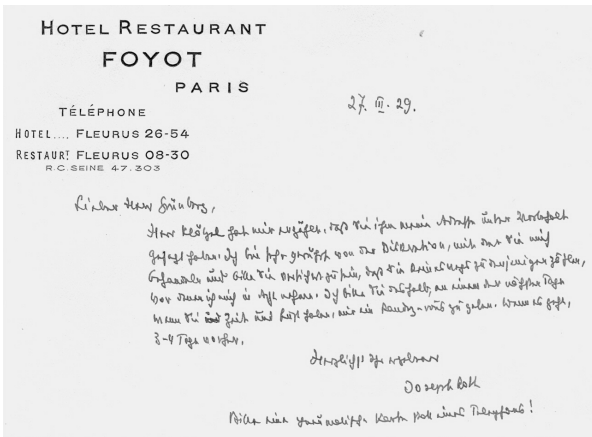 HOTEL RESTAURANT
FOYOT
PARIS
TÉLÉPHONE
HOTEL.... FLEURUS 26-54
RESTAURT FLEURUS 08-30
R.C. SEINE 47.303
27. III. 29.
Lieber Herr Grünberg,
Herr Kläber hat mir erzählt, daß Sie ihm meine Adresse unter Vorbehalt
gesagt haben. Ich bin sehr gerührt von der Diskretion, mit der Sie mich
behandeln und bitte Sie versichert zu sein, daß Sie keineswegs zu denjenigen zählen,
vor denen ich mich in Acht nehme. Ich bitte Sie deshalb, an einem der nächsten Tage
wenn Sie Zeit und Lust haben, mir ein Rendez-vous zu geben. Wenn es geht,
3-4 Tage vorher.
Herzlichst Ihr ergebener
Joseph Roth
Bitte eine pneumatische Karte statt eines Telephons!